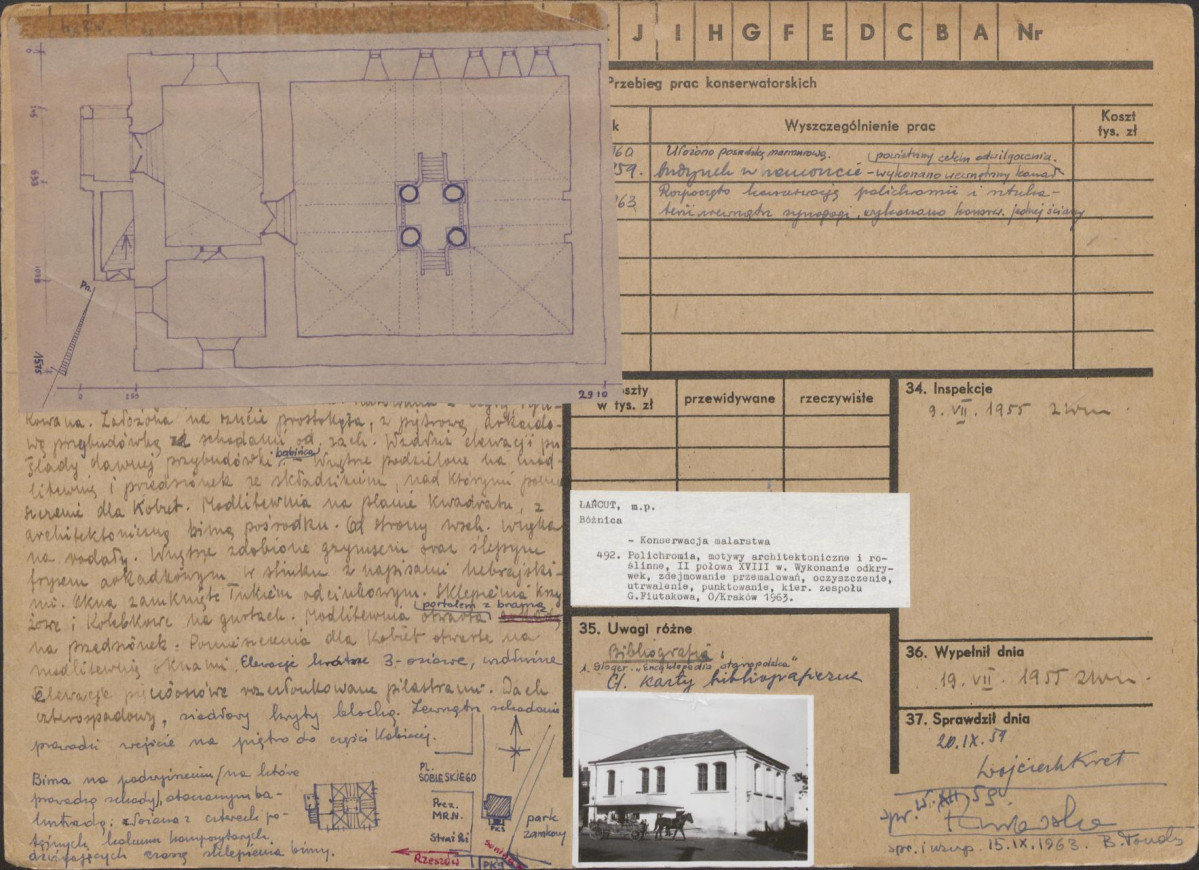 J I H G F E D C B A Nr
Przebieg prac konserwatorskich
k
Wyszczególnienie prac
Koszt
tys. zł
60 Ułożono posadzkę marmurową.
59. Budynek w remoncie - wykonano wewnętrzny kanał
63 Rozpoczęto konserwację polichromii i
wewnątrz synagogi, wykonano konserw. jednej ściany
0
633
1575
Pn.
0
100
2910
szty
w tys. zł
przewidywane
rzeczywiste
34. Inspekcje
9. VII. 1955
kowana. Założona na rzucie prostokąta, z piętrową arkado-
wą przybudówką ze schodami od zach. Wzdłuż elewacji
ślady dawnej przybudówki
babińca
Wnętrze podzielone na mod-
litewnię i przedsionek ze składzikiem, nad którymi pomie-
szczenie dla kobiet. Modlitewnia na planie kwadratu, z
architektoniczną bimą pośrodku. Od strony wsch. wnęka
na rodały. Wnętrze zdobione gzymsem oraz ślepym
fryzem arkadkowym w stiuku z napisami hebrajski-
mi. Okna zamknięte łukiem odcinkowym. Sklepienia krzy-
żowe i kolebkowe na gurtach. Modlitewnia otwarta
portalem z bramą
na przedsionek. Pomieszczenia dla kobiet otwarte na
modlitewnię oknami. Elewacje krótsze 3-osiowe, wzdłużne
Elewacje pięcioosiowe rozczłonkowane pilastrami. Dach
czterospadowy, siodłowy kryty blachą. Zewnątrz schodami
prowadzi wejście na piętro do części kobiecej.
Bima na podwyższeniu /na które
prowadzą schody/, otoczonym ba-
lustradą, złożona z czterech po-
tężnych kolumn kompozytowych
dźwigających czaszę sklepienia bimy.
PL.
SOBIESKIEGO
Prez.
MRN.
Straż
park
zamkowy
Rzeszów
ŁAŃCUT, m.p.
Bóżnica
- Konserwacja malarstwa
492. Polichromia, motywy architektoniczne i ro-
ślinne, II połowa XVIII w. Wykonanie odkry-
wek, zdejmowanie przemalowań, oczyszczenie,
utrwalenie, punktowanie, kier. zespołu
G.Fiutakowa, O/Kraków 1963.
35. Uwagi różne
Bibliografia:
1. Gloger - "Encyklopedia staropolska"
Cf. karty bibliograficzne
36. Wypełnił dnia
19. VII. 1955
37. Sprawdził dnia
20.IX.59
Wojciech Kret
spr. XII 59.
spr. i uzup. 15.IX.1963. B. Tondos